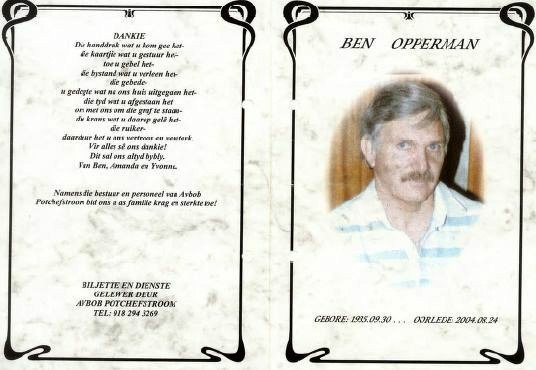 DANKIE
Die handdruk wat u kom gee het-
die kaartjie wat u gestuur het-
toe u gebel het-
die bystand wat u verleen het-
die gebede-
u gedagte wat na ons huis uitgegaan het-
die tyd wat u afgestaan het
om met ons om die graf te staan-
du krans wat u daarop gelê het-
die ruiker-
daardeur het u ons vertroos en versterk
Vir alles sê ons dankie!
Dit sal ons altyd bybly.
Van Ben, Amanda en Yvonne.
Namens die bestuur en personeel van Avbob
Potchefstroom bid ons u as familie krag en sterkte toe!
BILJETTE EN DIENSTE
GELEWER DEUR
AVBOB POTCHEFSTROOM
TEL: 018 294 3269
BEN OPPERMAN
GEBORE: 1935.09.30 . . . OORLEDE: 2004.08.24